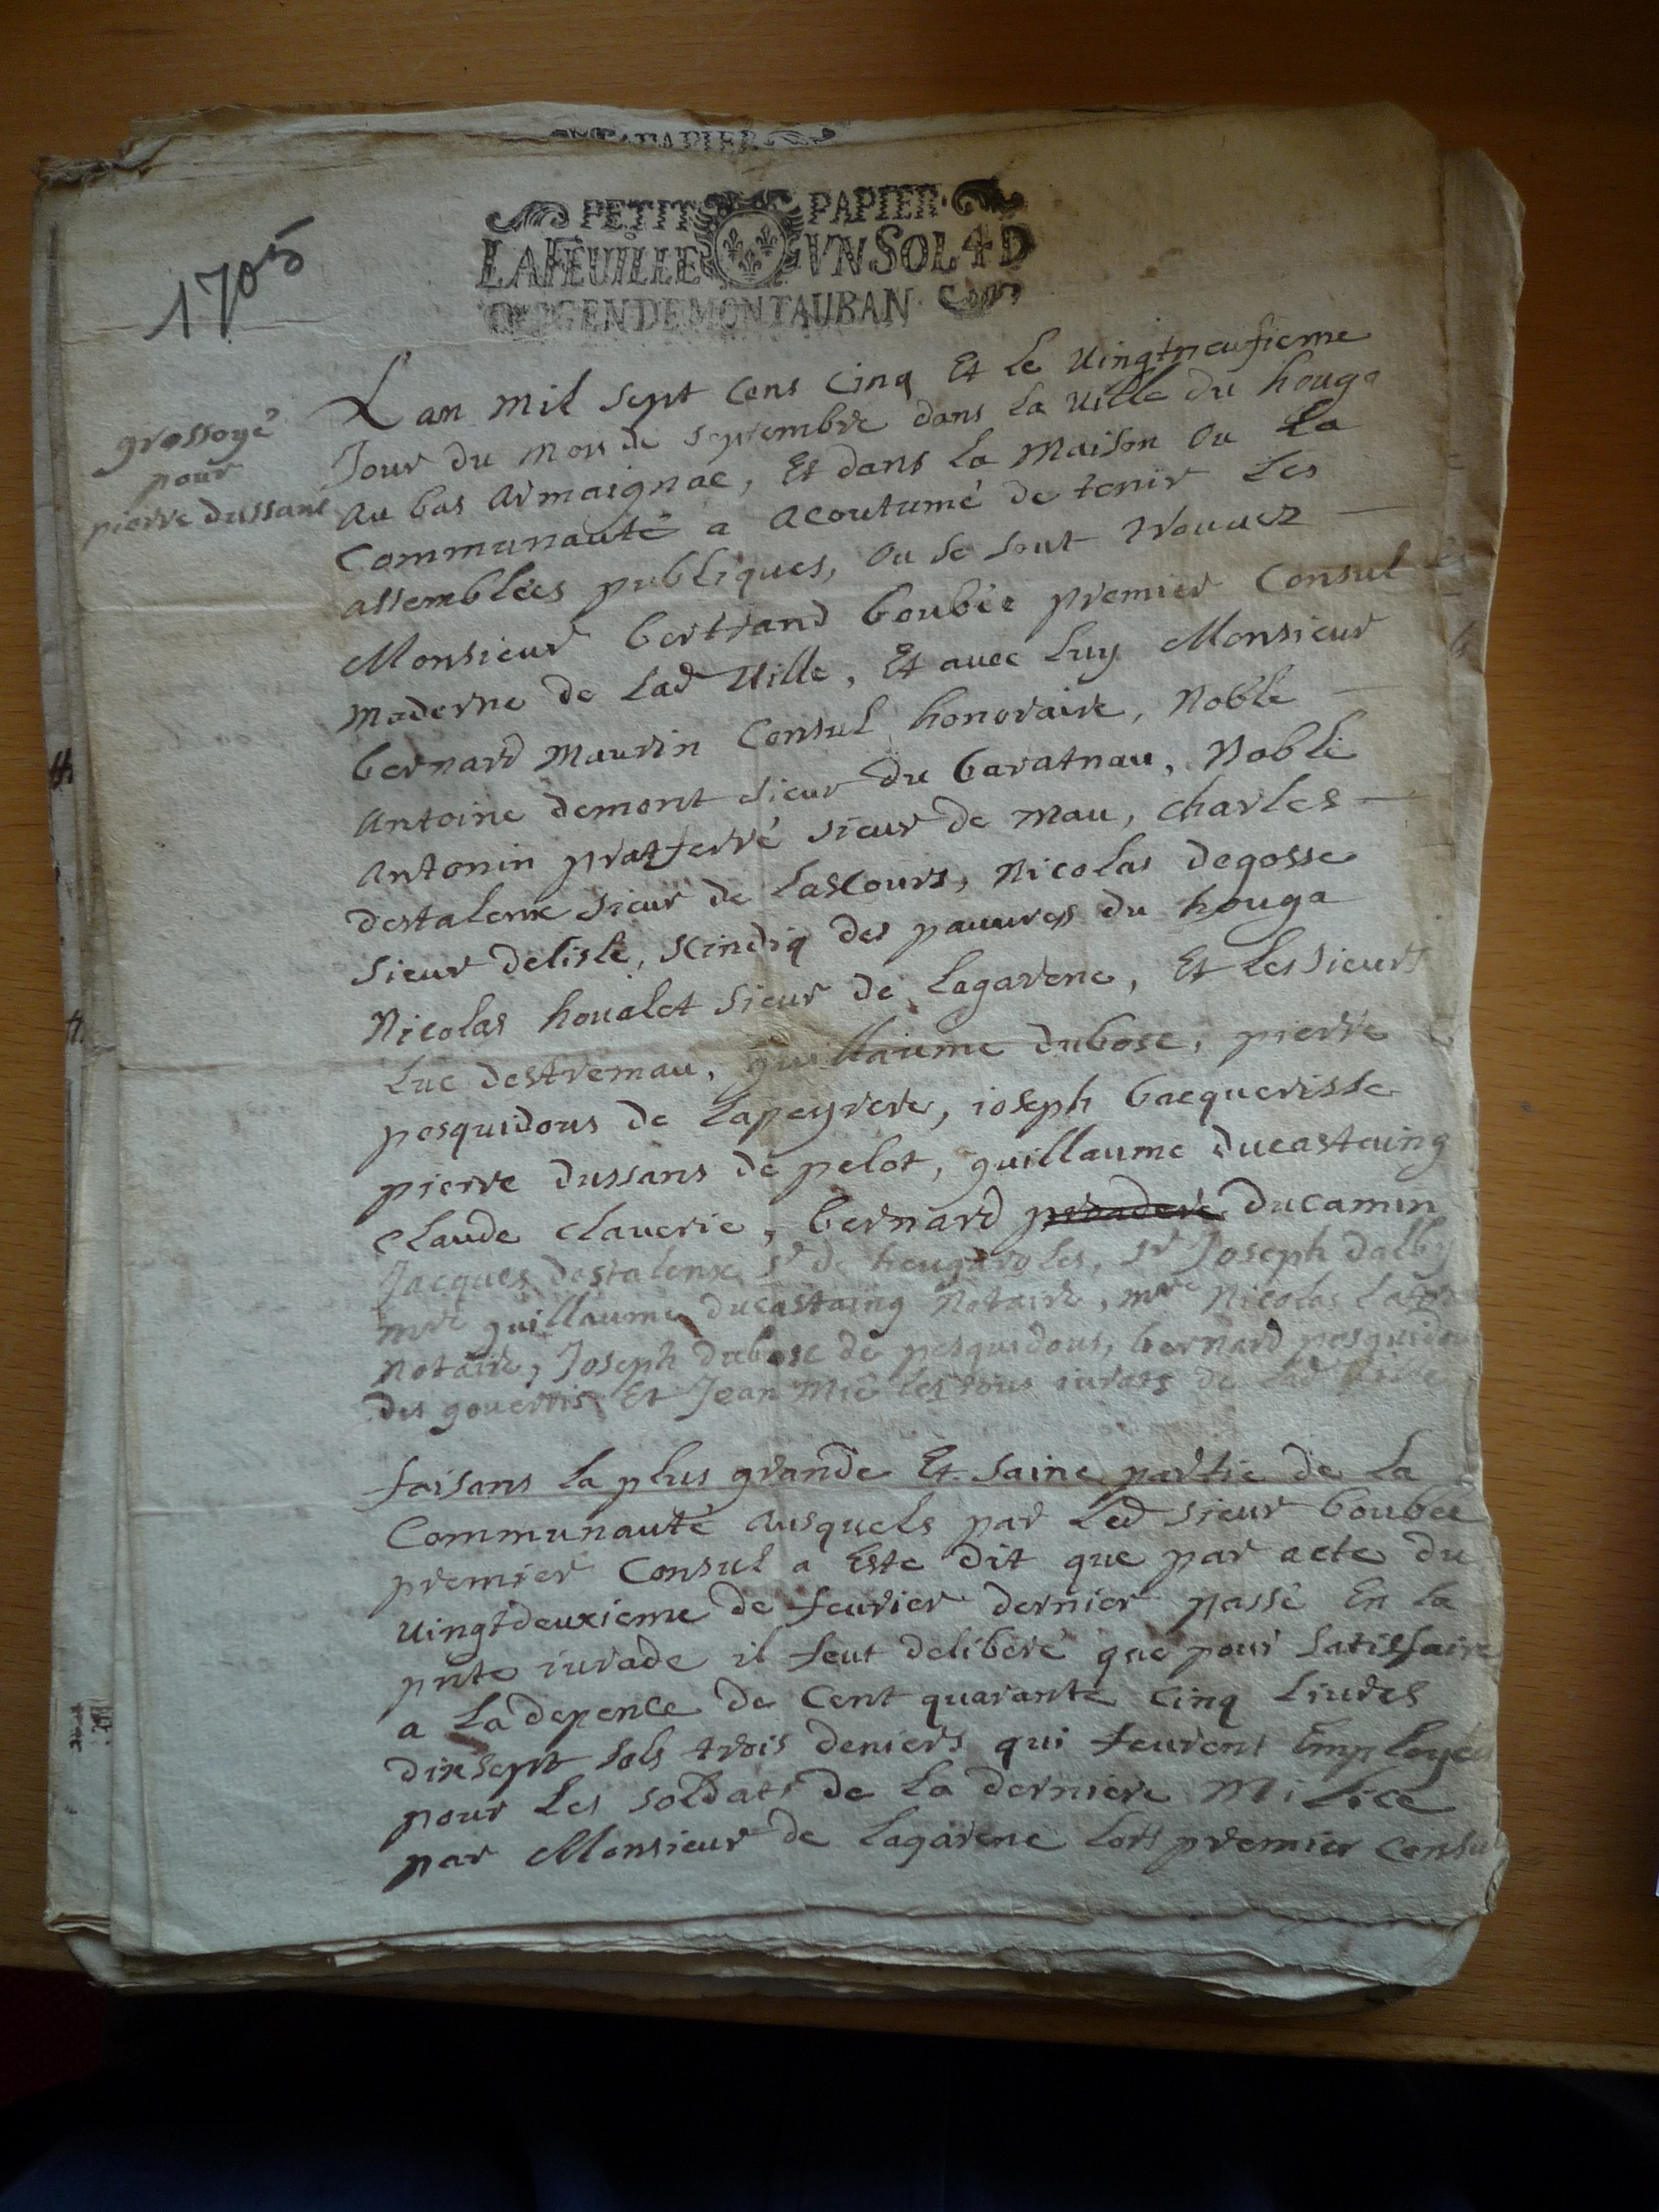 PAPIER
PETIT PAPIER
LA FEUILLE VN SOL 4 D
GEN DE MONTAUBAN
1705
grossoyé
pour
pierre dussans
Lan mil sept cens cinq Et le vingtneufieme
Jour du mois de septembre dans la ville du houga
au bas armaignac, Et dans la maison ou la
communauté a acoutumé de tenir les
assemblées publiques, ou se sont trouuez
Monsieur bertrand boubée premier Consul
moderne de lad ville, Et auec luy Monsieur
bernard maurin Consul honoraire, Noble
antoine demont sieur du baratnau, Noble
antonin pratferré sieur de mau, charles
destalenx sieur de lascours, nicolas degosse
sieur delisle, scindiq des pauures du houga
Nicolas houalet sieur de lagarene, Et les sieurs
luc destremau, guillaume dubosc, pierre
pesquidous de lapeyrere, ioseph bacquerisse
pierre dussans de pelot, guillaume ducastaing
claude clauerie, bernard ducamin
Jacques destalenx sr de heugaroles, sr Joseph dalby
mre guillaume ducastaing Notaire, mre Nicolas
Notaire, Joseph dubosc de pesquidous, bernard pesquidous
des gouertis Et Jean mié les tous iurats de lad ville
faisans la plus grande Et saine partie de la
Communauté ausquels par led sieur boubée
premier Consul a este dit que par acte du
vingtdeuxieme de feurier dernier passé En la
pnte iurade il feut deliberé que pour satisfaire
a la depence de cent quarante cinq liures
dixsept sols trois deniers qui feurent Employés
pour les soldats de la derniere Milice
par Monsieur de lagarene lors premier consul